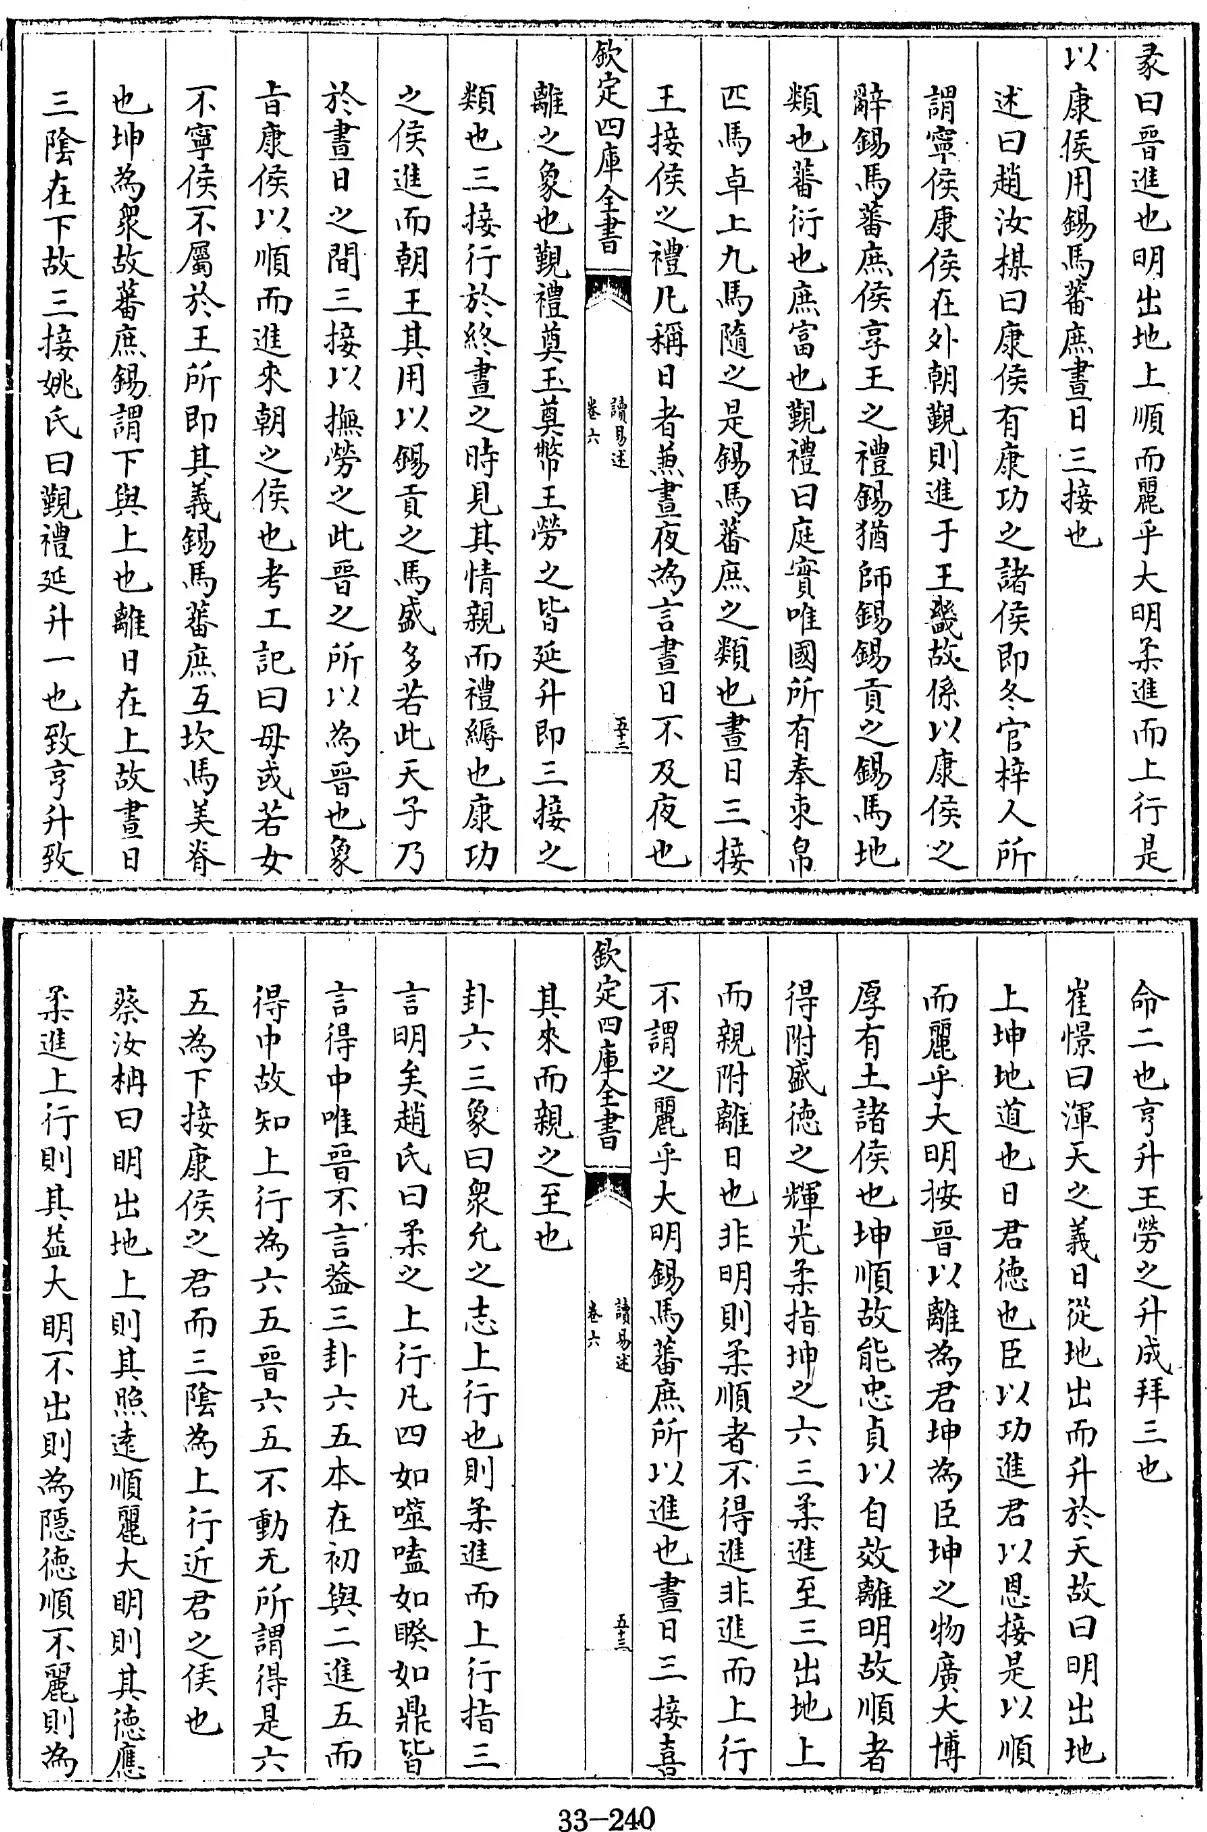 彖曰晉進也明出地上順而麗乎大明柔進而上行是
以康侯用錫馬蕃庶晝日三接也
述曰趙汝楳曰康侯有康功之諸侯即冬官梓人所
謂寧侯康侯在外朝覲則進于王畿故係以康侯之
辭錫馬蕃庶侯享王之禮錫猶師錫錫貢之錫馬地
類也蕃衍也庶富也覲禮曰庭實唯國所有奉束帛
匹馬卓上九馬隨之是錫馬蕃庶之類也晝日三接
王接侯之禮凡稱日者兼晝夜為言晝日不及夜也
欽定四庫全書
讀易述
卷六
五十二
離之象也覲禮奠玉奠幣王勞之皆延升即三接之
類也三接行於終晝之時見其情親而禮縟也康功
之侯進而朝王其用以錫貢之馬盛多若此天子乃
於晝日之間三接以撫勞之此晉之所以為晉也象
旨康侯以順而進來朝之侯也考工記曰毋或若女
不寧侯不屬於王所即其義錫馬蕃庶互坎馬美脊
也坤為衆故蕃庶錫謂下與上也離日在上故晝日
三陰在下故三接姚氏曰覲禮延升一也致享升致
命二也享升王勞之升成拜三也
崔憬曰渾天之義日從地出而升於天故曰明出地
上坤地道也日君德也臣以功進君以恩接是以順
而麗乎大明按晉以離為君坤為臣坤之物廣大博
厚有土諸侯也坤順故能忠貞以自效離明故順者
得附盛德之輝光柔指坤之六三柔進至三出地上
而親附離日也非明則柔順者不得進非進而上行
不謂之麗乎大明錫馬蕃庶所以進也晝日三接喜
欽定四庫全書
讀易述
卷六
五十三
其來而親之至也
卦六三象曰衆允之志上行也則柔進而上行指三
言明矣趙氏曰柔之上行凡四如噬嗑如睽如鼎皆
言得中唯晉不言葢三卦六五本在初與二進五而
得中故知上行為六五晉六五不動无所謂得是六
五為下接康侯之君而三陰為上行近君之侯也
蔡汝柟曰明出地上則其照遠順麗大明則其德應
柔進上行則其益大明不出則為隱德順不麗則為
33-240